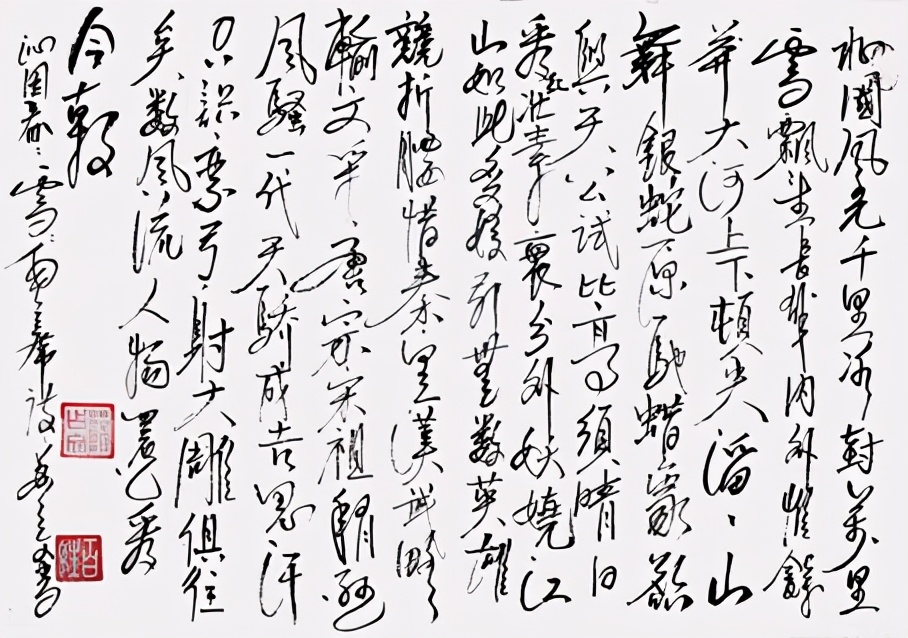 北國風光千里冰封萬里
雪飄望長城內外惟餘
莽大河上下頓失滔、山
舞銀蛇原馳蠟象欲
與天公試比高須晴日
看紅裝素裹分外妖嬈江
山如此多嬌引無數英雄
競折腰惜秦皇漢武略
輸文采唐宗宋祖稍遜
風騷一代天驕成吉思汗
只識彎弓射大雕俱往
矣數風流人物還看
今朝
沁園春雪